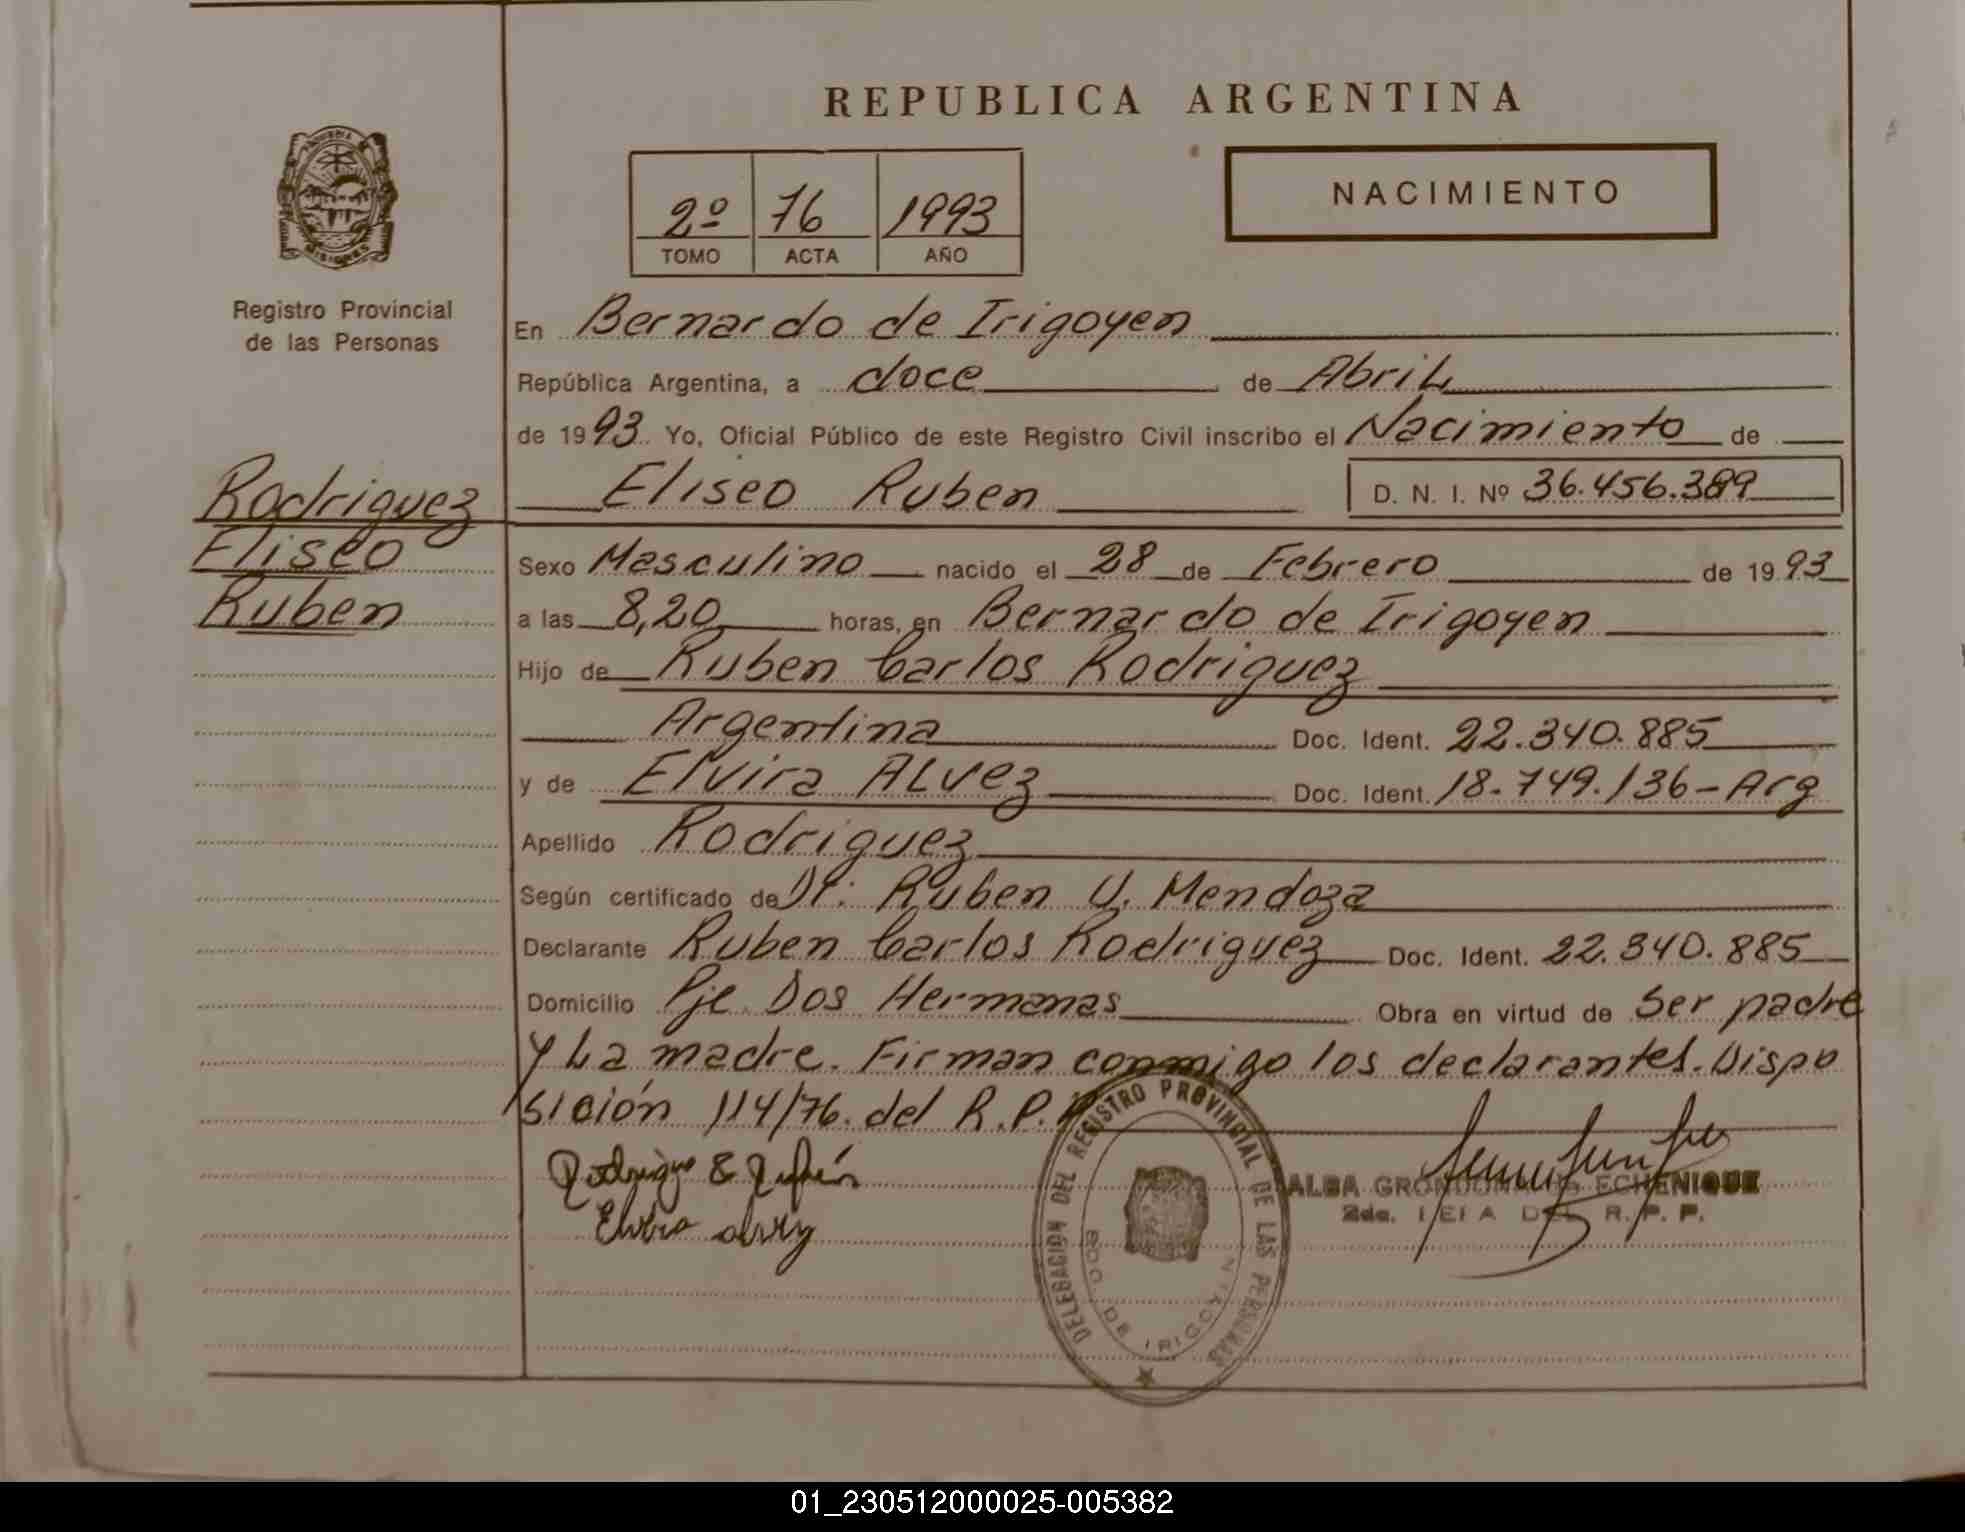 REPUBLICA ARGENTINA
NACIMIENTO
2º 76 1993
TOMO ACTA AÑO
MISIONES
Registro Provincial
de las Personas
Rodriguez
Eliseo
Ruben
En Bernardo de Irigoyen
República Argentina, a doce de Abril
de 1993 Yo, Oficial Público de este Registro Civil inscribo el Nacimiento de
Eliseo Ruben D. N. I. Nº 36.456.389
Sexo Masculino nacido el 28 de Febrero de 1993
a las 8,20 horas, en Bernardo de Irigoyen
Hijo de Ruben Carlos Rodriguez
Argentina Doc. Ident. 22.340.885
y de Elvira ALvez Doc. Ident. 18.749.136-Arg
Apellido Rodriguez
Según certificado de Dr: Ruben U. Mendoza
Declarante Ruben Carlos Rodriguez Doc. Ident. 22.340.885
Domicilio Pje Dos Hermanas Obra en virtud de Ser padre
y La madre. Firman conmigo los declarantes. Dispo
sición 114/76. del R.P.P
Elvira
DELEGACION DEL REGISTRO PROVINCIAL DE LAS PERSONAS
BDO. DE IRIGOYEN
ALBA GRONDONA DE ECHENIQUE
2da. JEFA DEL R. P. P.
01_230512000025-005382